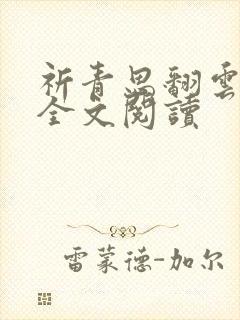 祈青思翻雲
全文閱讀
雷蒙德-加尔